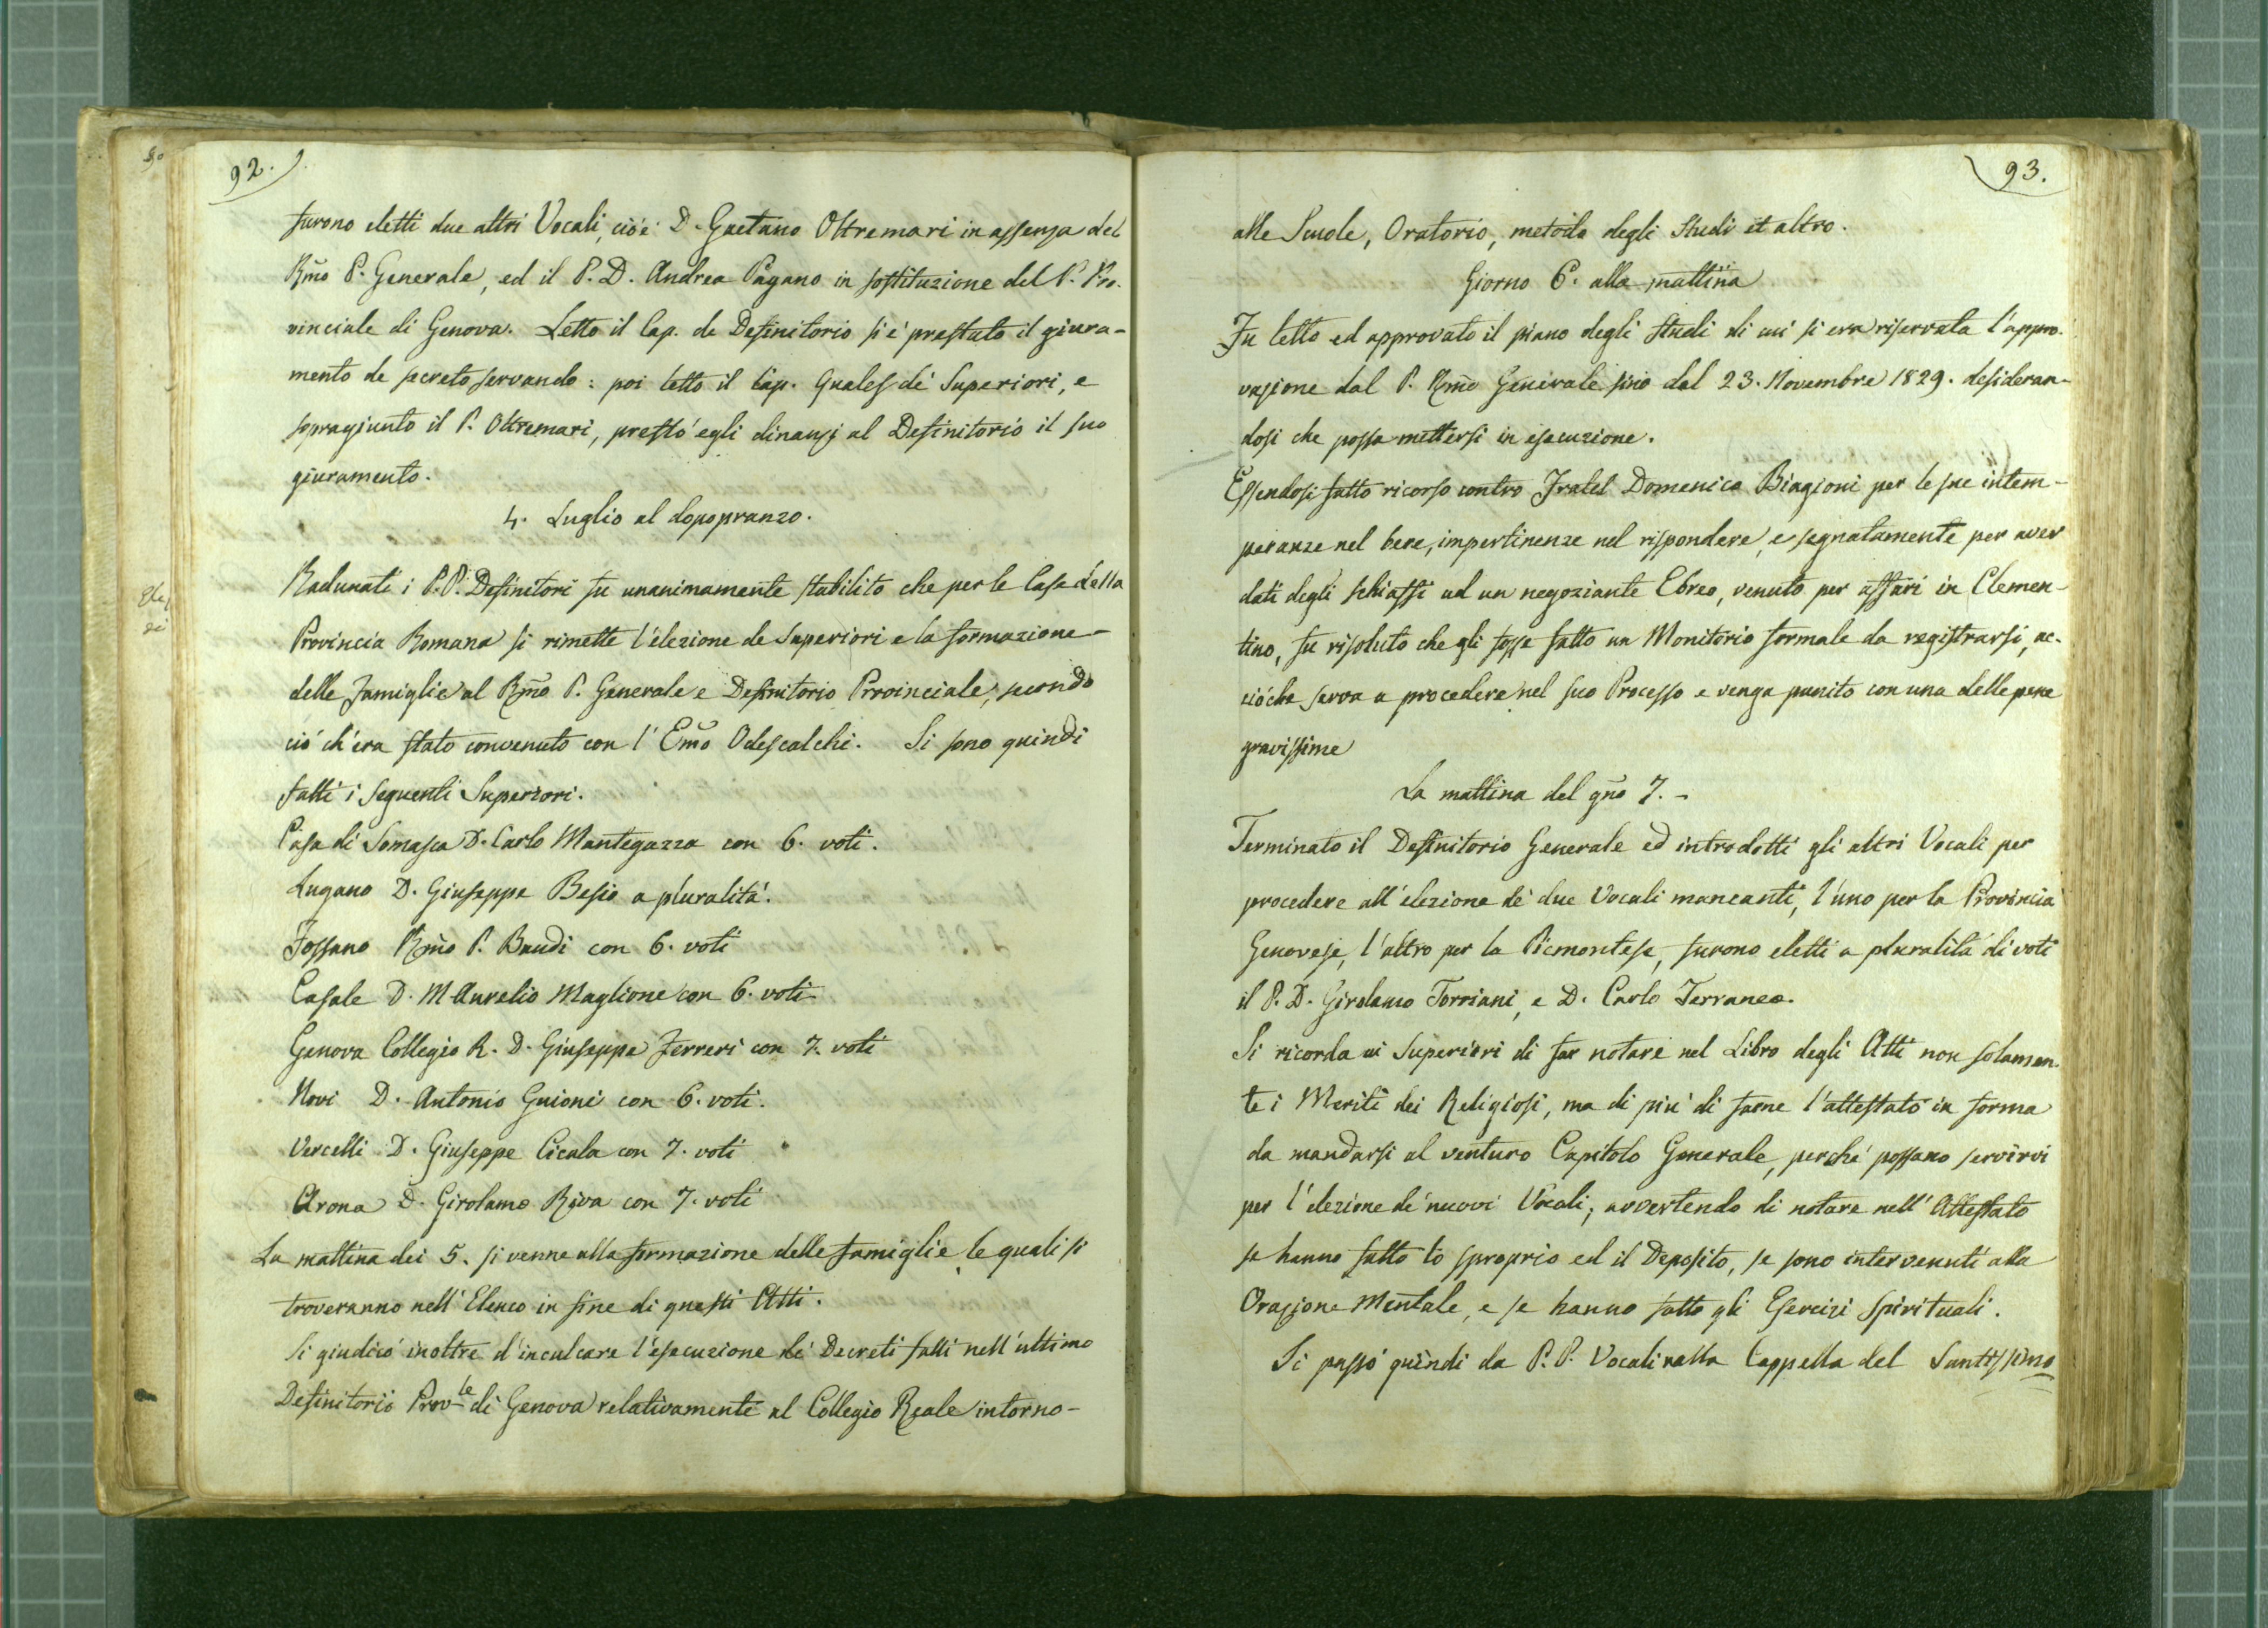 92.
furono eletti due altri Vocali, cioè D. Gaetano Oltremari in assenza del
Rmo P. Generale, ed il P. D. Andrea Pagano in sostituzione del P. Pro-
vinciale di Genova. Letto il Cap. de Definitorio si è prestato il giura-
mento de secreto servando: poi letto il Cap. Quales de' Superiori, e
sopragiunto il P. Oltremari, prestò egli dinanzi al Definitorio il suo
giuramento.
4. Luglio al dopopranzo.
Radunati i P.P. Definitori fu unanimamente stabilito che per le Case della
Provincia Romana si rimette l'elezione de Superiori e la formazione
delle Famiglie al Rmo P. Generale e Definitorio Provinciale, secondo
ciò ch'era stato convenuto con l'Emo Odescalchi. Si sono quindi
fatti i seguenti Superiori.
Casa di Somasca D. Carlo Mantegazza con 6. voti.
Lugano D. Giuseppe Besio a pluralità.
Fossano Rmo P. Baudi con 6. voti
Casale D. M Aurelio Maglione con 6. voti
Genova Collegio R. D. Giuseppe Ferreri con 7. voti
Novi D. Antonio Guioni con 6. voti.
Vercelli D. Giuseppe Cicala con 7. voti
Arona D. Girolamo Riva con 7. voti
La mattina dei 5. si venne alla formazione delle famiglie le quali si
troveranno nell'Elenco in fine di questi Atti.
Si giudicò inoltre d'inculcare l'esecuzione de' Decreti fatti nell'ultimo
Definitorio Prov.le di Genova relativamente al Collegio Reale intorno-
93.
alle Scuole, Oratorio, metodo degli studi et altro.
Giorno 6. alla mattina
Fu letto ed approvato il piano degli studi di cui si era riservata l'appro-
vazione dal P. Rmo Generale sino dal 23. Novembre 1829. desideran-
dosi che possa mettersi in esecuzione.
Essendosi fatto ricorso contro Fratel Domenico Biagioni per le sue intem-
peranze nel bere, impertinenze nel rispondere, e segnatamente per aver
dati degli schiaffi ad un negoziante Ebreo, venuto per affari in Clemen-
tino, fu risoluto che gli fosse fatto un Monitorio formale da registrarsi, ac-
ciòche serva a procedere nel suo Processo e venga punito con una delle pene
gravissime
La mattina del gno 7. -
Terminato il Definitorio Generale ed introdotti gli altri Vocali per
procedere all'elezione de' due Vocali mancanti, l'uno per la Provincia
Genovese, l'altro per la Piemontese, furono eletti a pluralità di voti
il P. D. Girolamo Torriani, e D. Carlo Ferraneo.
Si ricorda ai Superiori di far notare nel Libro degli Atti non solamen-
te i Meriti dei Religiosi, ma di più di farne l'attestato in forma
da mandarsi al venturo Capitolo Generale, perchè possano servirvi
per l'elezione de' nuovi Vocali; avvertendo di notare nell'Attestato
se hanno fatto lo sproprio ed il Deposito, se sono intervenuti alla
Orazione Mentale, e se hanno fatto gli Esercizi Spirituali.
Si passò quindi da P.P. Vocali nella Cappella del Santissimo